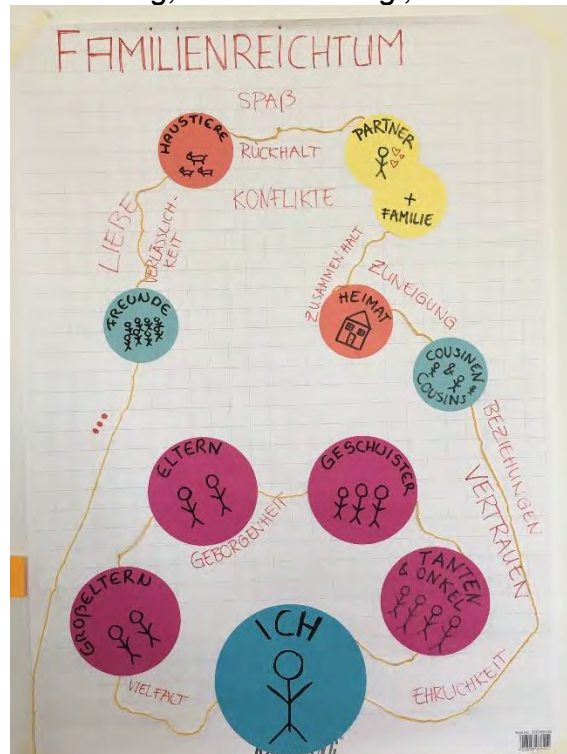 FAMILIENREICHTUM
SPAß
HAUSTIERE
RÜCKHALT
PARTNER
+
FAMILIE
KONFLIKTE
LIEBE
VERLÄSSLICH-
KEIT
ZUSAMMENHALT
ZUNEIGUNG
FREUNDE
HEIMAT
COUSINEN
&
COUSINS
...
BEZIEHUNGEN
VERTRAUEN
ELTERN
GESCHWISTER
GEBORGENHEIT
TANTEN
& ONKEL
GROßELTERN
ICH
VIELFALT
EHRLICHKEIT